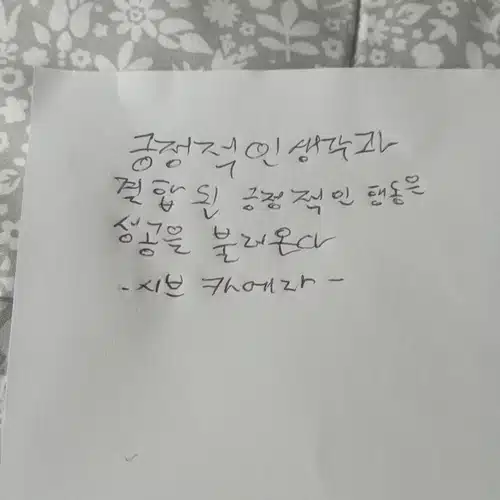 긍정적인 생각과
결합 된 긍정적인 행동은
성공을 불러온다
- 시브 캐에라 -